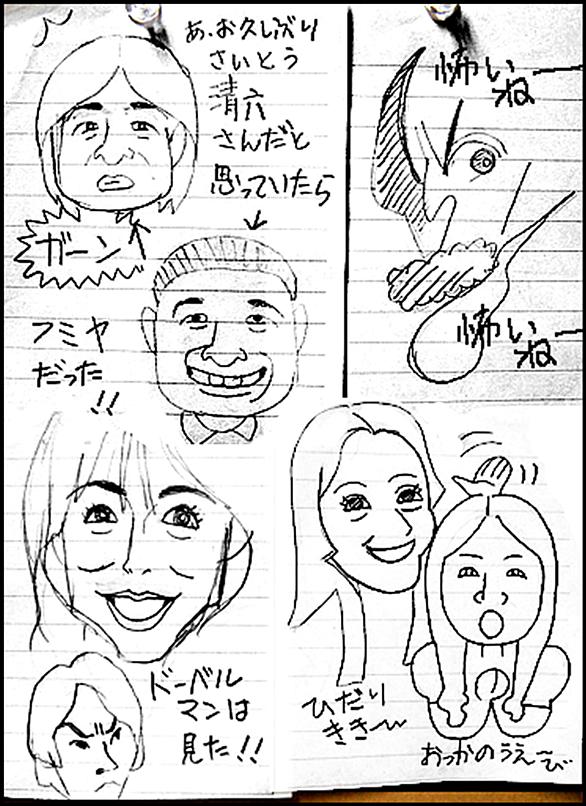 あ、お久しぶり
さいとう
清六
さんだと
思っていたら
ガーン
フミヤ
だった
!!
怖い
ねー
怖い
ねー
ドーベル
マンは
見た!!
ひだり
きき〜
おっかのうえ〜び